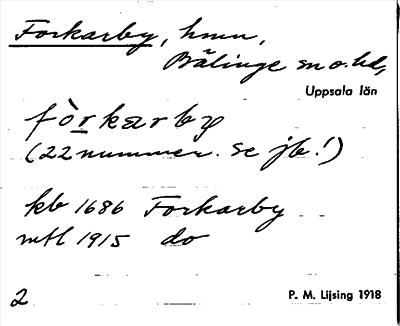 Forkarby, hmn,
Bälinge sn o. hd,
Uppsala län
fòrkarby
(22 nummer. Se jb!)
kb 1686 Forkarby
mtl 1915 do
2
P. M. Lijsing 1918